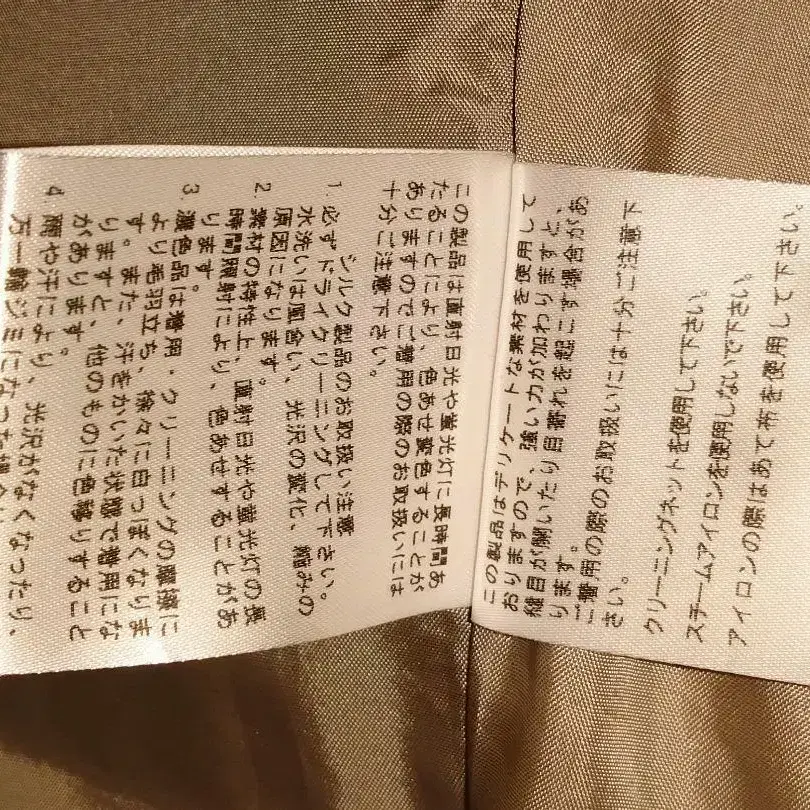 この製品は直射日光や蛍光灯に長時間あ
たることにより、色あせ変色することが
ありますのでご着用の際のお取扱いには
十分ご注意下さい。
シルク製品のお取扱い注意
1. 必ずドライクリーニングして下さい。
水洗いは風合い、光沢の変化、縮みの
原因になります。
2. 素材の特性上、直射日光や蛍光灯の長
時間照射により、色あせすることがあ
ります。
3 濃色品は着用・クリーニングの摩擦に
より毛羽立ち、徐々に白っぽくなりま
す。また、汗をかいた状態で着用にな
りますと、他のものに色移りすること
があります。
4 雨や汗により、光沢がなくなったり、
万一輪ジミになった
この製品はデリケートな素材を使用して
おりますので、強い力が加わりますと、
縫目が開いたり目寄れを起こす場合があ
ります。
ご着用の際のお取扱いには十分ご注意下
さい。
クリーニングネットを使用して下さい。
スチームアイロンを使用しないで下さい。
アイロンの際はあて布を使用して下さい。